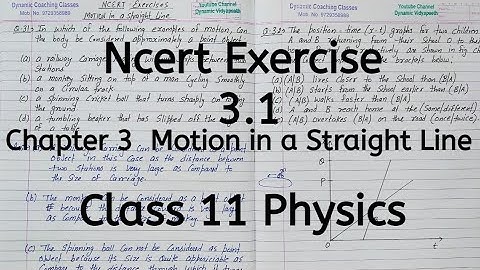 Dynamic Coaching Classes
Mob. No. 9729358989
NCERT Exercises
Motion in a Straight Line
Youtube Channel
Dynamic Vidyapeeth
Youtube Channel
Dynamic Vidyapeeth
Dynamic Coaching Classes
Mob. No. 9729358989
Q:3.1> In which of the following examples of motion, Can
the body be Considered approximately a point object
(a) a railway Carriage
between
Stations
(b) a monkey sitting on top of a man Cycling Smoothly
on a Circular track
(c) a spinning Cricket ball that turns Sharply on
the ground
(d) a tumbling beaker that has Slipped off the
of a table
The position-time (x-t) graphs for two Children
A and B
shown in Fig.
the brackets below.
(a) (A/B) lives Closer to the School than (B/A)
(b) (A/B) Starts from the School earlier than (B/A)
(c) (A/B) walks faster than (B/A)
(d) A and B reach home at the (Same/different)
(A/B) overtakes (B/A) on the road (once/twice)
Ncert Exercise
3.1
Chapter 3 Motion in a Straight Line
Class 11 Physics
object in this Case as the distance between
two Stations is very large as Compared to
the Size of Carriage.
(b)
be Considered as a
object
because
as Compared to
(c) The Spinning ball Can not be Considered as point
object because its Size is Quite appreciable as
Compare to the distance through which it
Q
P
t